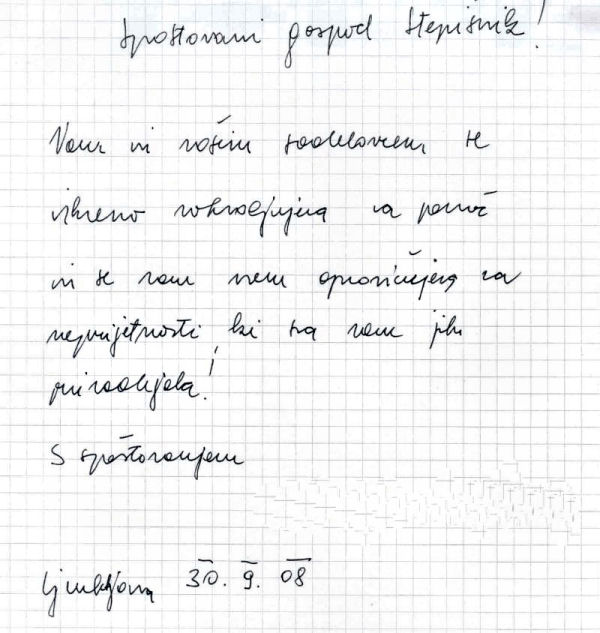 Spoštovani gospod Stepišnik!
Vam in vašim sodelavcem se
iskreno zahvaljujem za pomoč
in se vam vsem opravičujem za
neprijetnosti, ki sva vam jih
prizadejala!
S spoštovanjem
Ljubljana 30. 9. 08